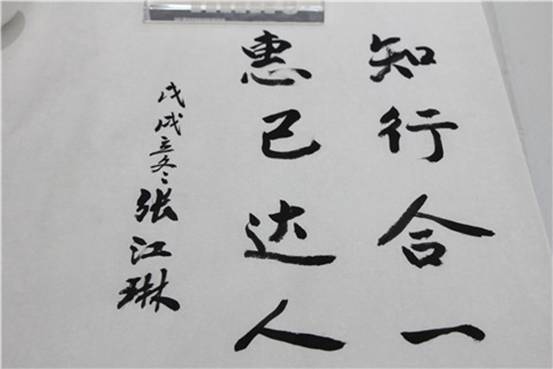 知行合一
惠己达人
戊戌立冬 张江琳